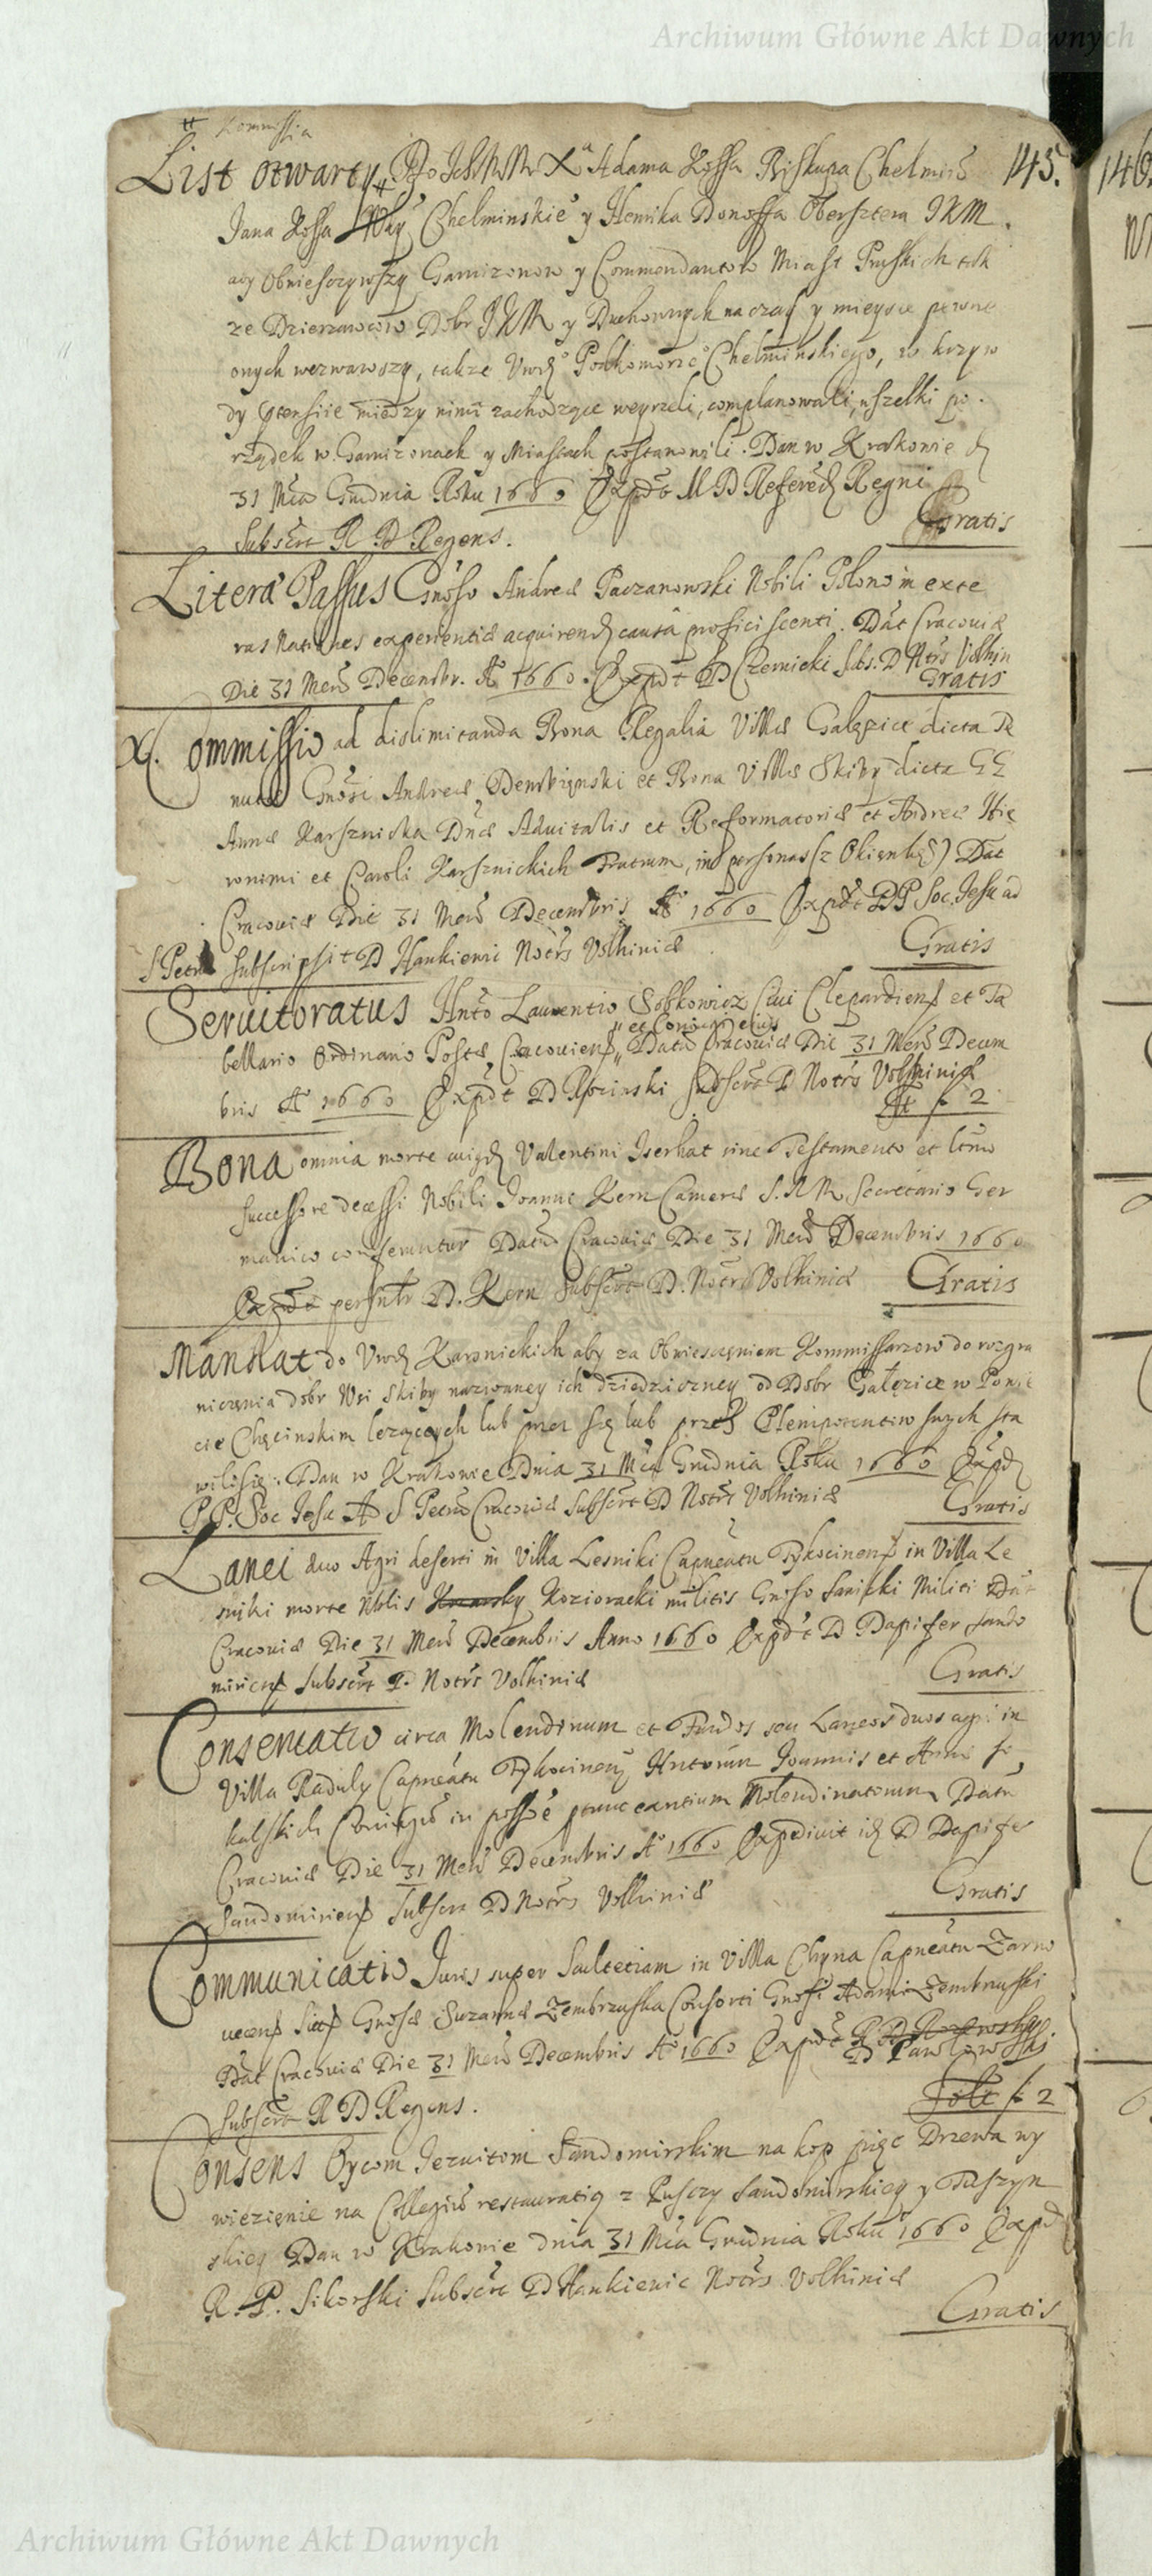 Archiwum Główne Akt Dawnych
Kommissia
List otwarty Do Ich MM X Adama Kossa Biskupa Chelmins 145.
Jana Kossa Chelminskie y Henrika Donoffa Obersztera JKM
aby obwiesczywszy Garnizonow y Commendantow Miast Pruskich tak
ze Dzierzawcow Dobr JKM y Duchownych na czas y mieysce pewne
onych wezwawszy, takze Urodz Podkomorze Chelminskiego, w krzyw
dy ptensiie między nimi zachodzące weyrzeli, complanowali, wszelki po
rządek w Garnizonach y Miastach postanowili. Dan w Krakowie d
31 Mca Grudnia Roku 1660 Expdt M D Referend Regni
Gratis
Subscrt R D Regens.
Litera Passus Gnoso Andreæ Paczanowski Nobili Polono in exte
ras Nationes experientiæ acquirendæ causa proficiscenti. Dat Cracoviæ
Die 31 Mens Decembr. Ao 1660. Expdt D Czernicki Subs. D Notrs Volhin
Gratis
Commissio ad dislimitanda Bona Regalia Villæ Galęzice dicta Te
nutæ Gnosi Andreæ Dembinski et Bona Villæ Skiby dicta GG
Annæ Karsznicka Dnæ Advitalis et Reformatoriæ et Andreæ Hie
ronimi et Caroli Karsznickich Fratrum, in personas (z Okienką) Dat
Cracoviæ Die 31 Mens Decembris Ao 1660 Expdt PP Soc. Jesu ad
S Petrū subscripsit D Hankiewi Notrs Volhiniæ
Gratis
Servitoratus Hnto Laurentio Sobkowicz Civi Clepardiens et Ta
et Coniugi eius
bellario Ordinario Postæ Cracoviens Datū Cracoviæ Die 31 Mens Decem
bris Ao 1660 Expdt D subscrt D Notrs Volhiniæ
f 2
Bona omnia morte cuigd Valentini Iserhat sine Testamento et ltmo
successore decessi Nobili Joanni Kern Cameræ S.R.M. Secretario Ger
manico conferuntur Datū Cracoviæ Die 31 Mens Decembris 1660
Expdt D. Kern Subscrt D. Notrs Volhiniæ Gratis
Mandat do Urodz Karsnickich aby za Obwiesczeniem Kommissarzow do rozgra
niczenia dobr Wsi Skiby nazwaney ich dziedziczney od Dobr Gałęzice w Powie
cie Chęcinskim lezących lub przez się lub przez Plenipotentow swych sta
wili się. Dan w Krakowie Dnia 31 Mca Grudnia Roku 1660 Expd
P.P. Soc Jesu Ad S Petrū Cracoviæ Subscrt D Notrs Volhiniæ
Gratis
Lanei duo Agri deserti in Villa Lesniki Capneatu Tykocinens in Villa Le
sniki morte Nblis Kozioracki militis Gnoso Sanicki Militi Dat
Cracoviæ Die 31 Mens Decembris Anno 1660 Expdt D Dapifer Sando
miriens Subscrt D Notrs Volhiniæ
Gratis
Conservatio circa Molendinum et Fundos seu Laneos duos agri in
Villa Raduly Capneatu Tykocinens Hntorum Joannis et Annæ
kalskich Coniugū in posse Molendinatorum Datū
Cracoviæ Die 31 Mens Decembris Ao 1660 Expedivit id D Dapifer
Sandomiriens Subscrt D Notrs Volhiniæ
Gratis
Communicatio Juris super Scultetiam in Villa Chyna Capneatu Żarno
vecens Gnosæ Suzannæ Zembrzuska Consorti Gnosi Adami Zembrzuski
Dat Cracoviæ Die 31 Mens Decembris Ao 1660 Expdt
D Pawłowski
f 2
Subscrt R D Regens.
Consens Oycom Jezuitom Sandomirskim na kop pięc Drzewa wy
wiezienie na Collegiū restauratią z Puszczy Sandomirskiey y Tuszyn
skiey Dan w Krakowie dnia 31 Mca Grudnia Roku 1660 Expd
R. P. Sikorski Subscrt D Hankiewic Notrs Volhiniæ
Gratis
Archiwum Główne Akt Dawnych